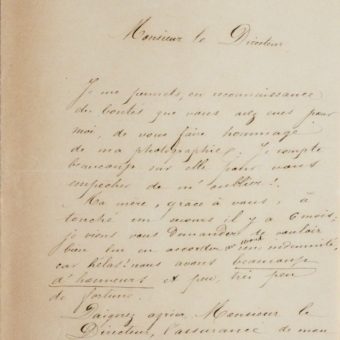 Monsieur le Directeur
Je me permets, en reconnaissance
des bontés que vous avez eues pour
moi, de vous faire hommage
de ma photographie. Je compte
beaucoup sur elle pour vous
empêcher de m'oublier!
Ma mère, grâce à vous, a
touché un secours il y a 6 mois.
je viens vous demander de vouloir
bien lui en accorder une indemnité,
car hélas! nous avons beaucoup
d'honneurs et peu, très peu
de fortune.
Daignez agréer Monsieur le
Directeur, l'assurance de mon